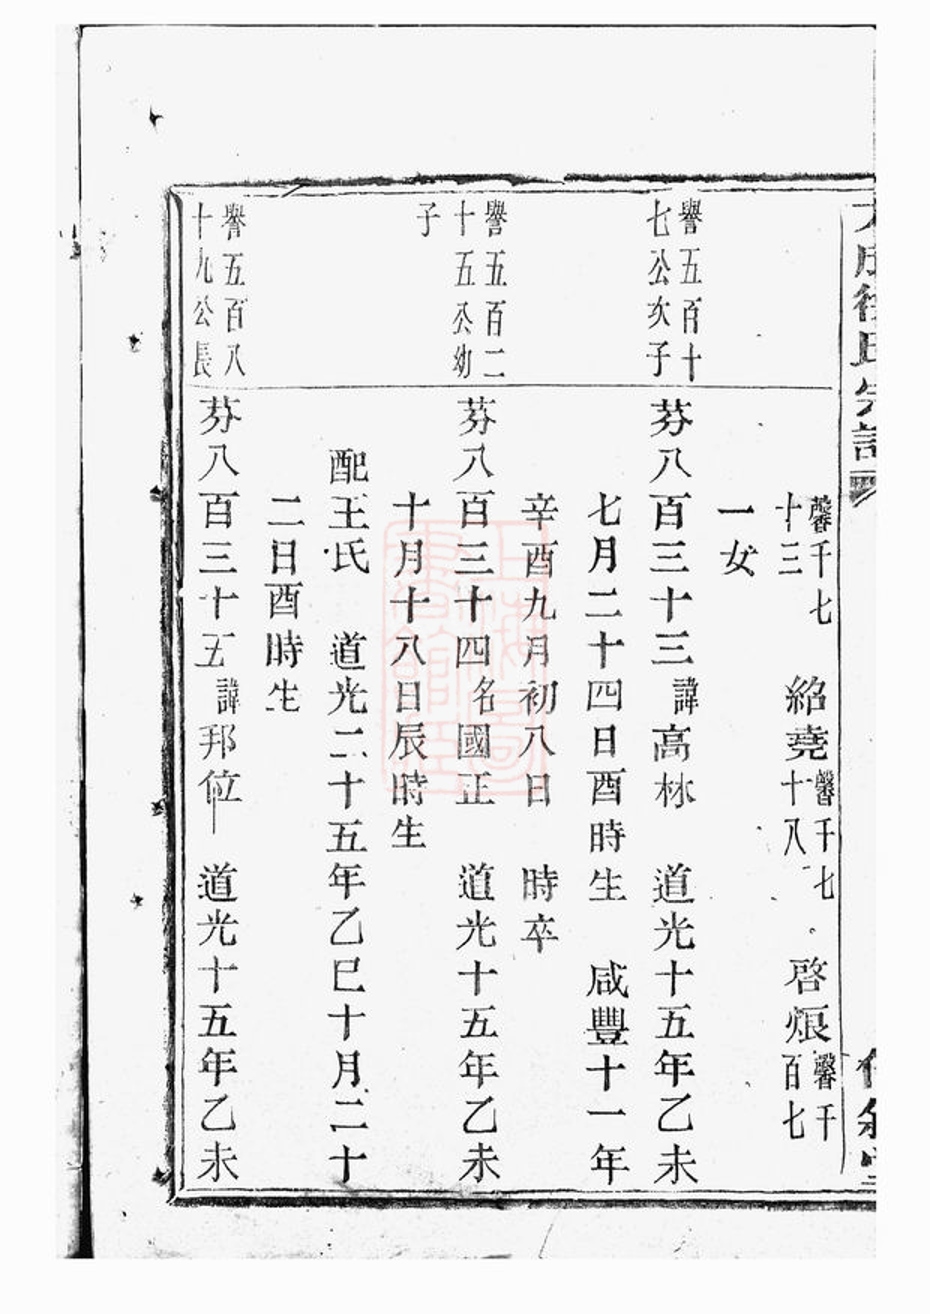 馨千七十三　紹堯馨千七十八　啓烺馨千百七
一女
譽五百十七公次子
芬八百三十三諱高林　道光十五年乙未
七月二十四日酉時生　咸豐十一年
辛酉九月初八日　時卒
譽五百二十五公幼子
芬八百三十四名國正　道光十五年乙未
十月十八日辰時生
配王氏　道光二十五年乙巳十月二十
二日酉時生
譽五百八十九公長
芬八百三十五諱邦位　道光十五年乙未